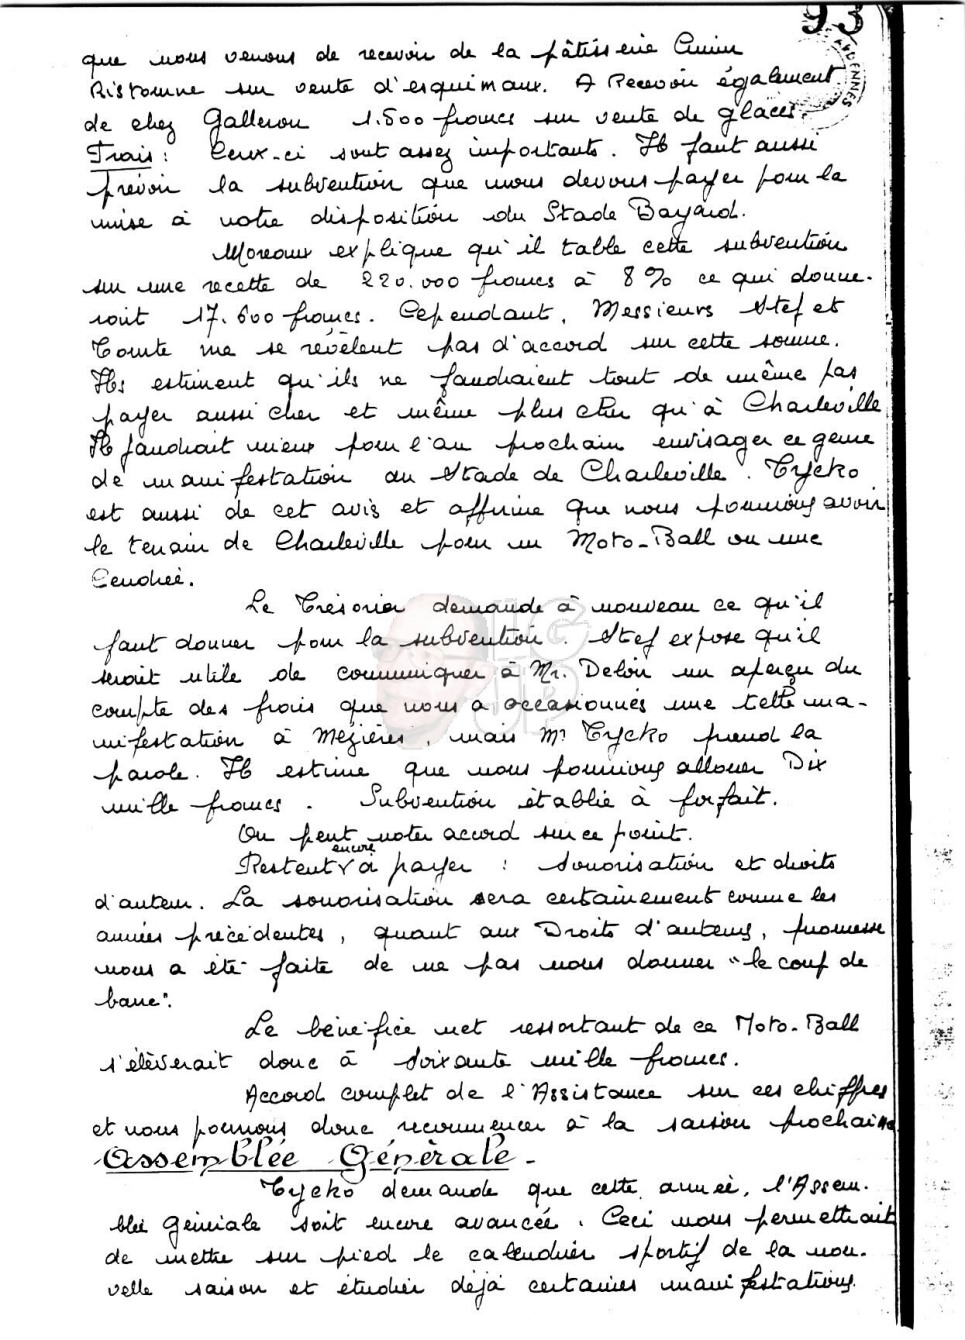 93
ARDENNES
que nous venons de recevoir de la pâtisserie
Ristorme sur vente d'esquimaux. A Recevoir également
de chez Galleron 1.500 francs sur vente de glaces.
Frais : Ceux-ci sont assez importants. Il faut aussi
prévoir la subvention que nous devons payer pour la
mise à notre disposition du Stade Bayard.
Moreaux explique qu'il table cette subvention
sur une recette de 220.000 francs à 8% ce qui donne-
rait 17.600 francs. Cependant, Messieurs Stef et
Comte ne se révèlent pas d'accord sur cette somme.
Ils estiment qu'ils ne faudraient tout de même pas
payer aussi cher et même plus cher qu'à Charleville
Il faudrait mieux pour l'an prochain envisager ce genre
de manifestation au Stade de Charleville. Tycko
est aussi de cet avis et affirme que nous pourrions avoir
le terrain de Charleville pour un Moto-Ball ou une
Cendrée.
Le Trésorier demande à nouveau ce qu'il
faut donner pour la subvention. Stef expose qu'il
serait utile de communiquer à Mr. Deloir un aperçu du
compte des frais que nous a occasionnés une telle ma-
nifestation à Mézières, mais Mr Tycko prend la
parole. Il estime que nous pourrions allouer Dix
mille francs. Subvention établie à forfait.
On peut noter accord sur ce point.
Restent encore à payer : Sonorisation et droits
d'auteur. La sonorisation sera certainement comme les
années précédentes, quant aux Droits d'auteurs, promesse
nous a été faite de ne pas nous donner "le coup de
barre".
Le bénéfice net ressortant de ce Moto-Ball
s'élèverait donc à Soixante mille francs.
Accord complet de l'Assistance sur ces chiffres
et nous pourrons donc recommencer à la saison prochaine
Assemblée Générale -
Tycko demande que cette année, l'Assem-
blée Générale soit encore avancée. Ceci nous permettrait
de mettre sur pied le calendrier sportif de la nou-
velle saison et étudier déjà certaines manifestations